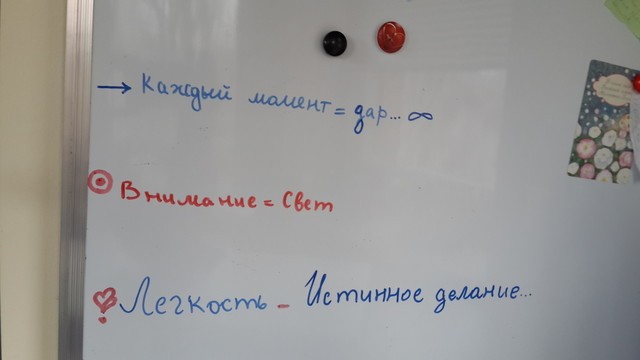 → Каждый момент = дар... ∞
Внимание = Свет
Легкость - Истинное делание...